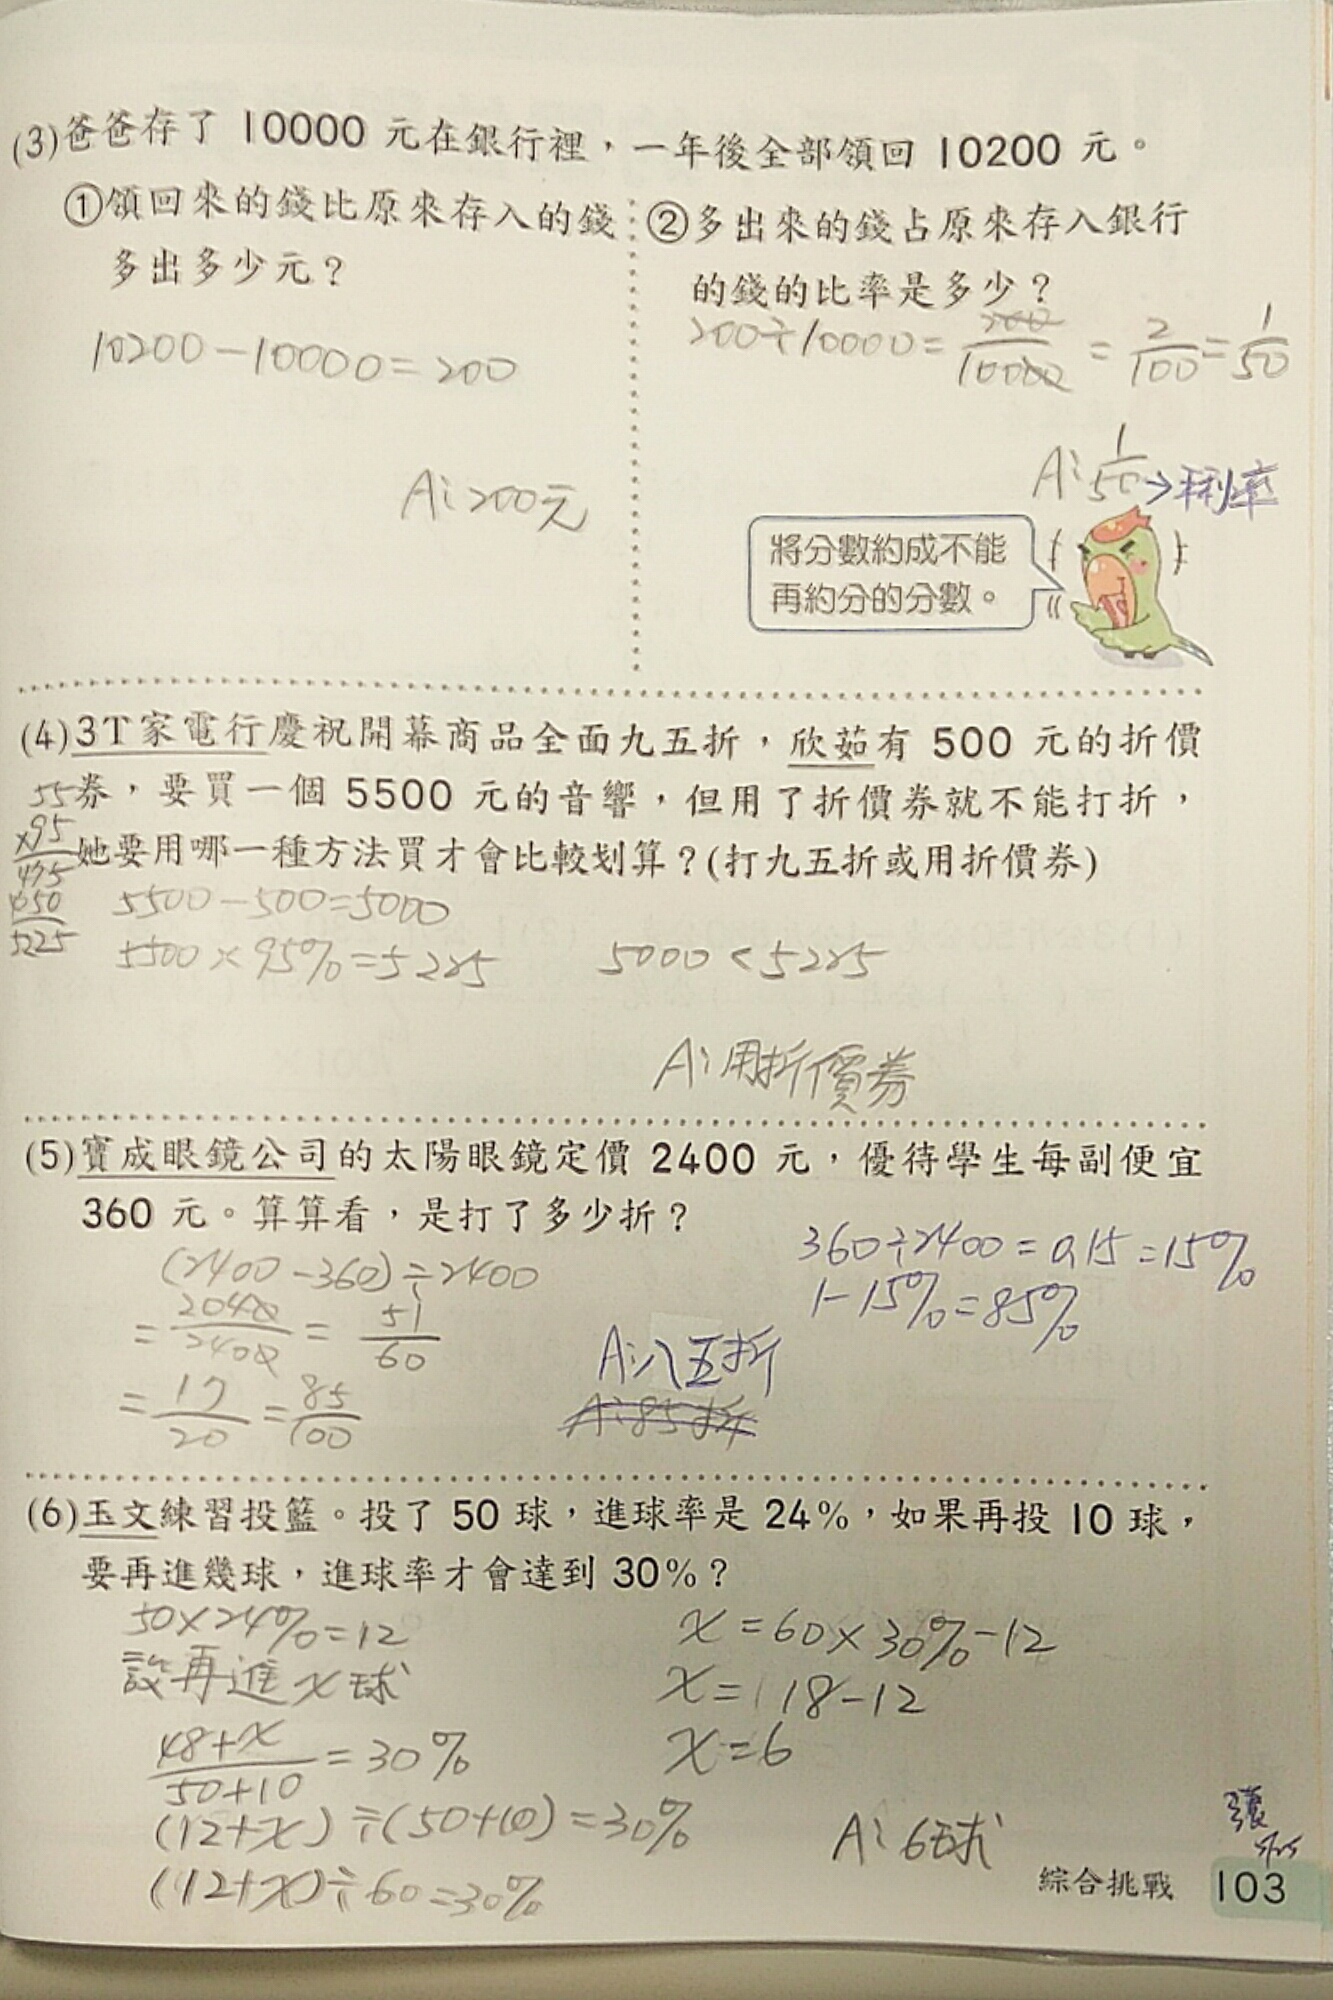 (3)爸爸存了 10000 元在銀行裡，一年後全部領回 10200 元。
①領回來的錢比原來存入的錢
多出多少元？
10200-10000=200
A:200元
②多出來的錢占原來存入銀行
的錢的比率是多少？
200÷10000=200/10000=2/100=1/50
A:1/50→利率
將分數約成不能
再約分的分數。
(4)3T家電行慶祝開幕商品全面九五折，欣茹有 500 元的折價
券，要買一個 5500 元的音響，但用了折價券就不能打折，
她要用哪一種方法買才會比較划算？(打九五折或用折價券)
55
×95
475
5225
5500-500=5000
5500×95%=5225
5000<5225
A:用折價券
(5)寶成眼鏡公司的太陽眼鏡定價 2400 元，優待學生每副便宜
360 元。算算看，是打了多少折？
(2400-360)÷2400
=2040/2400=51/60
=17/20=85/100
360÷2400=0.15=15%
1-15%=85%
A:八五折
A:85折
(6)玉文練習投籃。投了 50 球，進球率是 24%，如果再投 10 球，
要再進幾球，進球率才會達到 30%？
50×24%=12
設再進x球
48+x/50+10=30%
(12+x)÷(50+10)=30%
(12+x)÷60=30%
x=60×30%-12
x=18-12
x=6
A:6球
綜合挑戰 103